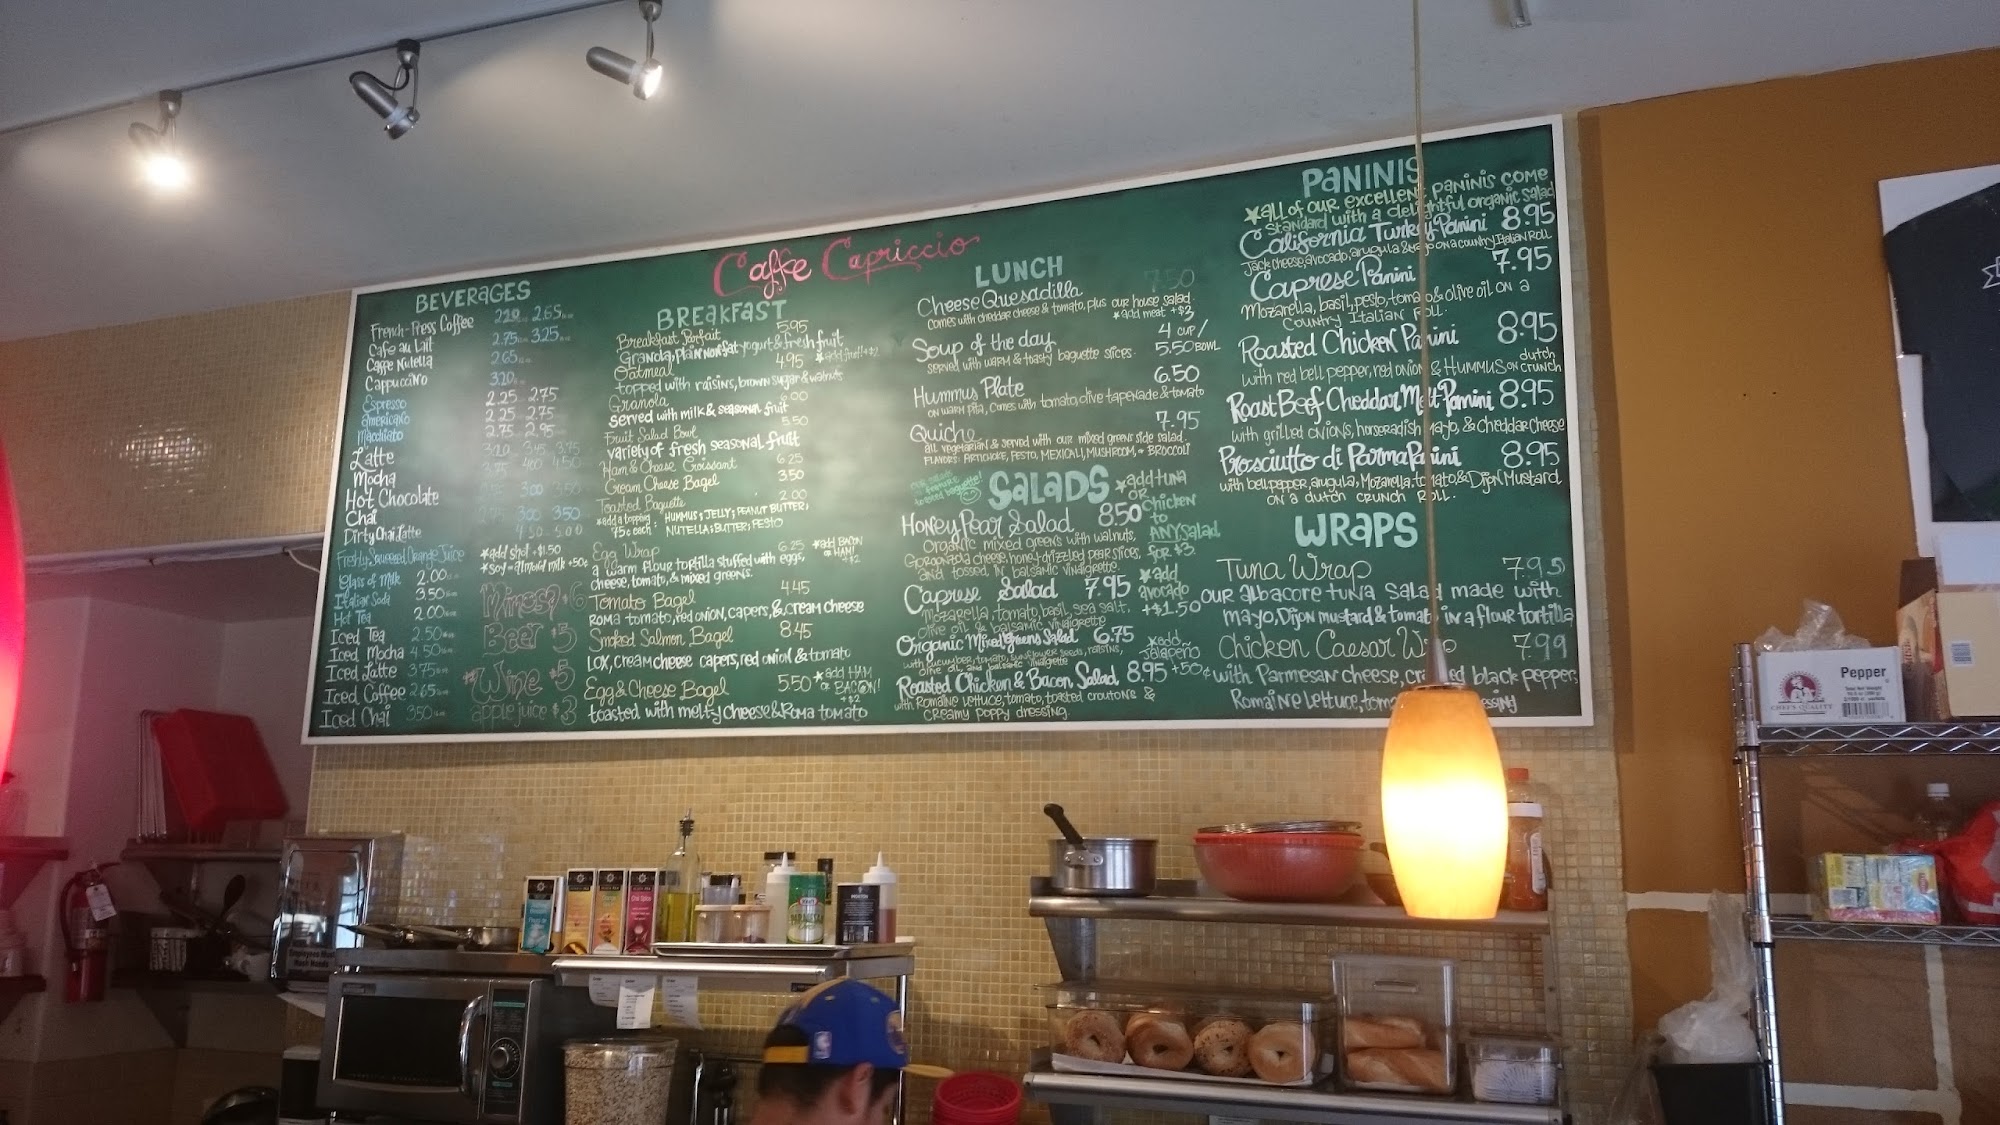 Caffe Capriccio
BEVERAGES
French-Press Coffee 2.20 2.65
Cafe au Lait 2.75 3.25
Caffe Nutella 2.65
Cappuccino 3.20
Espresso 2.25 2.75
americano 2.25 2.75
Macchiato 2.75 2.95
Latte 3.20 3.45 3.75
Mocha 3.75 4.00 4.50
Hot Chocolate 3.00
Chai 3.00 3.50
Dirty Chai Latte 4.50 5.00
Freshly Squeezed Orange Juice
Glass of Milk 2.00
Italian Soda 3.50
Hot Tea 2.00
Iced Tea 2.50
Iced Mocha 4.50
Iced Latte 3.75
Iced Coffee 2.65
Iced Chai 3.50
*add shot +$1.50
*soy-almond milk +50¢
Mimosa $6
Beer $5
Wine $5
apple juice $3
BREAKFAST
Breakfast Parfait 5.95
Granola, plain nonfat yogurt & fresh fruit
Oatmeal 4.95 *add fruit +$2
topped with raisins, brown sugar & walnuts
Granola 6.00
served with milk & seasonal fruit
Fruit Salad Bowl 5.50
variety of fresh seasonal fruit
Ham & Cheese Croissant 6.25
Cream Cheese Bagel 3.50
Toasted Baguette 2.00
*add a topping 75¢ each: HUMMUS; JELLY; PEANUT BUTTER;
NUTELLA; BUTTER; PESTO
Egg Wrap 6.25 *add BACON or HAM! +$2
a warm flour tortilla stuffed with eggs,
cheese, tomato, & mixed greens.
Tomato Bagel 4.45
Roma tomato, red onion, capers, & cream cheese
Smoked Salmon Bagel 8.45
LOX, cream cheese capers, red onion & tomato
Egg & Cheese Bagel 5.50 *add HAM or BACON! +$2
toasted with melty cheese & Roma tomato
LUNCH
Cheese Quesadilla 7.50
Comes with cheddar cheese & tomato, plus our house salad.
*add meat +$3
Soup of the day 4 CUP/
served with warm & toasty baguette slices. 5.50 BOWL
Hummus Plate 6.50
on warm pita, comes with tomato, olive tapenade & tomato
Quiche 7.95
all vegetarian & served with our mixed greens side salad.
FLAVORS: ARTICHOKE, PESTO, MEXICALI, MUSHROOM, or BROCCOLI
SALADS
*add tuna
OR
Chicken
to
ANY Salad
for $3.
Honey Pear Salad 8.50
Organic mixed greens with walnuts,
Gorgonzola cheese, honey-drizzled pear slices,
and tossed in balsamic vinaigrette.
Caprese Salad 7.95
Mozarella, tomato, basil, sea salt,
olive oil & balsamic vinaigrette
*add
avocado
+$1.50
Organic Mixed Greens Salad 6.75
with cucumber, tomato, sunflower seeds, raisins,
olive oil, and balsamic vinaigrette
*add
jalapeño
+50¢
Roasted Chicken & Bacon Salad 8.95
with Romaine lettuce, tomato, toasted croutons &
creamy poppy dressing.
PANINIS
*all of our excellent paninis come
standard with a delightful organic salad
California Turkey Panini 8.95
Jack cheese, avocado, arugula & mayo on a country Italian Roll
Caprese Panini 7.95
Mozarella, basil, pesto, tomato & olive oil on a
Country Italian Roll.
Roasted Chicken Panini 8.95
with red bell pepper, red onion & HUMMUS on dutch crunch
Roast Beef Cheddar Melt Panini 8.95
with grilled onions, horseradish mayo, & Cheddar Cheese
Prosciutto di Parma Panini 8.95
with bell pepper, arugula, Mozarella, tomato & Dijon Mustard
on a dutch crunch roll.
WRAPS
Tuna Wrap 7.95
our albacore tuna salad made with
mayo, Dijon mustard & tomato in a flour tortilla
Chicken Caesar Wrap 7.99
with Parmesan cheese, cracked black pepper,
Romaine lettuce,
Pepper
CHEF'S QUALITY
Employees Must
Wash Hands